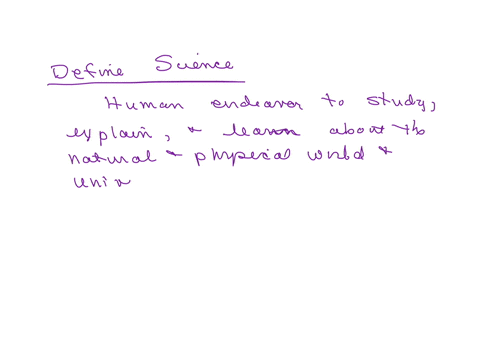 Define Science
Human endeaver to study,
explain, & learn about the
natural & physical world &
univ